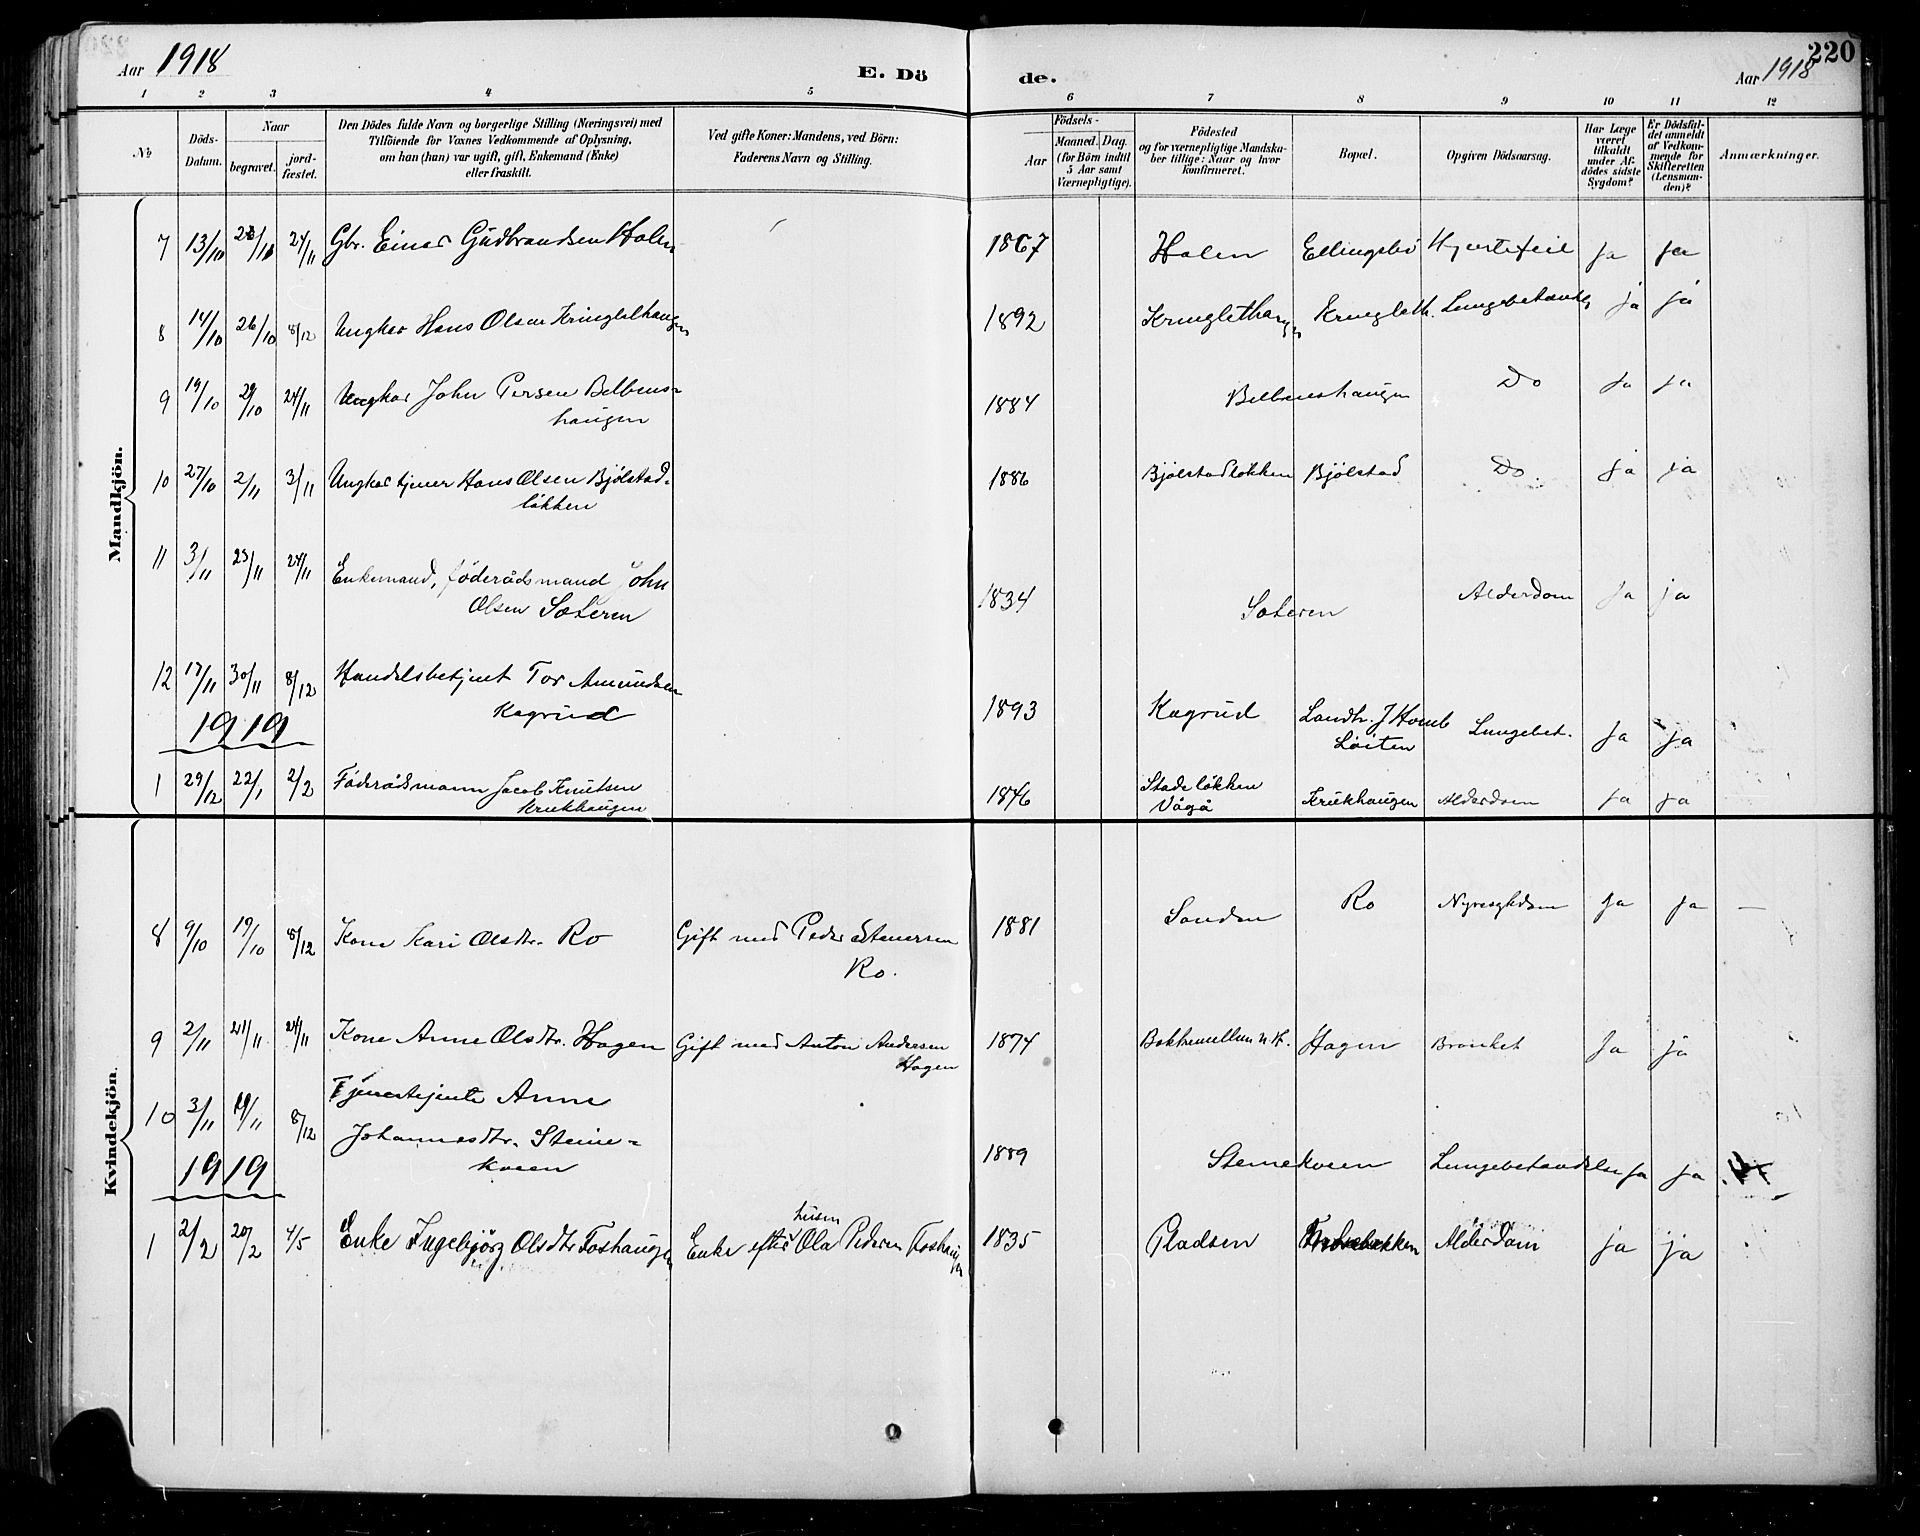 Aar 1918
E. Dö
de.
Aar 1918
220
1 2 3 4 5 6 7 8 9 10 11 12
No
Döds-Datum.
Naar
begravet.
jord-fæstet.
Den Dödes fulde Navn og borgerlige Stilling (Næringsvei) med
Tilföiende for Voxnes Vedkommende af Oplysning,
om han (han) var ugift, gift, Enkemand (Enke)
eller fraskilt.
Ved gifte Koner: Mandens, ved Börn:
Faderens Navn og Stilling.
Födsels-
Aar
Maaned. Dag.
(for Börn indtil
5 Aar samt
Værnepligtige).
Födested
og for værnepligtige Mandska-
ber tillige: Naar og hvor
konfirmeret.
Bopæl.
Opgiven Dödsaarsag.
Har Læge
været
tilkaldt
under Af-
dödes sidste
Sygdom?
Er Dödsfal-
det anmeldt
af Vedkom-
mende for
Skifteretten
(Lensman-
den)?
Anmærkninger.
Mandkjön.
7 13/10 /10 24/11 Gbr. Einar Gudbrandsen Holen 1867 Holen Ellingsbö Hjertefeil ja ja
8 14/10 26/10 8/12 Ungkar Hans Olsen Kringlethaugen 1892 Kringlethaugen Kringleth. Lungebetændelse ja ja
9 19/10 29/10 24/11 Ungkar John Persen Belbens-
haugen 1884 Belbenshaugen Do ja ja
10 27/10 2/11 3/11 Ungkar tjener Hans Olsen Bjölstad-
lökken 1886 Bjölstadlökken Bjölstad Do. ja ja
11 3/11 23/11 24/11 Enkemand, föderådsmand John
Olsen Sæteren 1834 Sæteren Alderdom ja ja
12 17/11 30/11 8/12 Handelsbetjent Tor Amundsen
Kagrud 1893 Kagrud Landh. J Homb
Löiten Lungebet. ja ja
1919
1 29/12 22/1 2/2 Föderådsmann Jacob Knutsen
Krukhaugen 1846 Stadelökken
Vågå Krukhaugen Alderdom ja ja
Kvindekjön.
8 9/10 19/10 8/12 Kone Kari Olsdtr. Ro Gift med Peder Stenersen
Ro. 1881 Sanden Ro Nyresygdom ja ja —
9 2/11 21/11 24/11 Kone Anne Olsdtr. Hagen Gift med Anton Andersen
Hagen 1874 Bakkemellum n. H. Hagen Bronket ja ja
10 3/11 19/11 8/12 Tjenestejente Anne
Johannesdtr. Steine-
kveen 1889 Steinekveen Lungebetændelse ja ja
1919
1 2/2 20/2 4/5 Enke Ingebjörg Olsdtr Foshaugen Enke efter husm Ola Pedersen Foshaugen 1835 Pladsen Alderdom ja ja